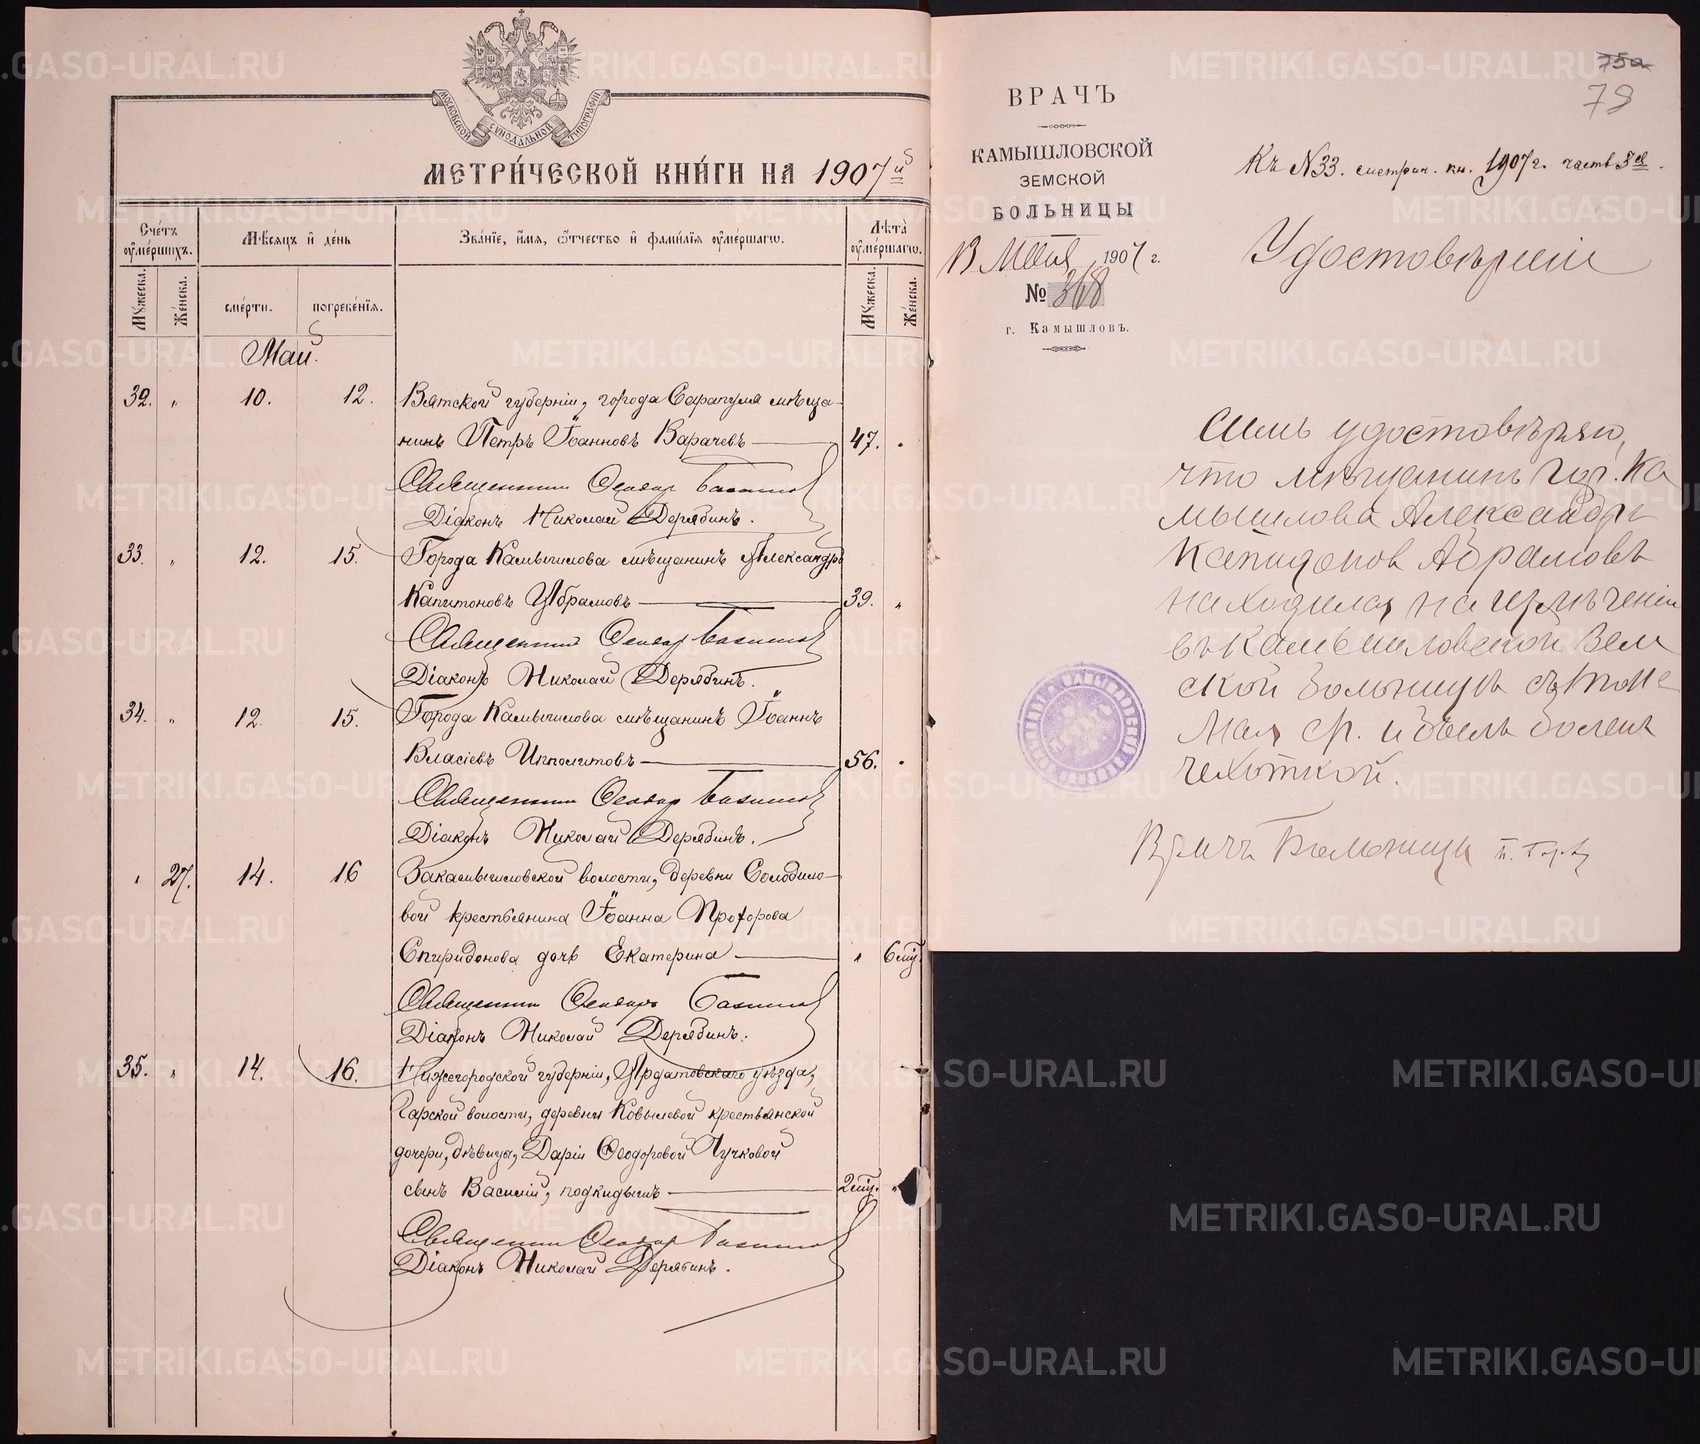 МОСКОВСКОЙ СѴНОДАЛЬНОЙ ТИПОГРАФІИ
МЕТРИ́ЧЕСКОЙ КНИ́ГИ НА 1907 й
Сче́тъ оу҆ме́ршихъ.
Мѣ́сяцъ и҆ де́нь
Зва́нїе, и҆́мя, ѻ҆́тчество и҆ фами́лїя оу҆ме́ршагѡ.
Лѣ́та оу҆ме́ршагѡ.
Мꙋ́жеска.
Же́нска.
сме́рти.
погребе́нїя.
Мꙋ́жеска.
Же́нска.
Май.
32. " 10. 12. Вятской губерніи, города Сарапуля мѣща-
нинъ Петръ Іоанновъ Варачевъ 47. "
Священникъ Ѳеодоръ
Діаконъ Николай Дерябинъ.
33. " 12. 15. Города Камышлова мѣщанинъ Александръ
Капитоновъ Абрамовъ 39. "
Священникъ Ѳеодоръ
Діаконъ Николай Дерябинъ.
34. " 12. 15. Города Камышлова мѣщанинъ Іоаннъ
Власіевъ Ипполитовъ 56. "
Священникъ Ѳеодоръ
Діаконъ Николай Дерябинъ.
" 27. 14. 16 Закамышловской волости, деревни Солодило-
вой крестьянина Іоанна Прохорова
Спиридонова дочь Екатерина " 6 мц.
Священникъ Ѳеодоръ
Діаконъ Николай Дерябинъ.
35. " 14. 16. Нижегородской губерніи, Ардатовскаго уѣзда,
Гарской волости, деревни Ковылевой крестьянской
дочери, дѣвицы, Даріи Ѳеодоровой Пучковой
сынъ Василій, подкидышъ 2 мц. "
Священникъ Ѳеодоръ
Діаконъ Николай Дерябинъ.
75а
79
ВРАЧЪ
КАМЫШЛОВСКОЙ
ЗЕМСКОЙ
БОЛЬНИЦЫ
13 Мая 1907 г.
№ 368
г. Камышловъ.
Къ №33. метрич. кн. 1907 г. часть 3-я.
Удостовѣреніе
Симъ удостовѣряю,
что мѣщанинъ гор. Ка
мышлова Александръ
Капитонов Абрамовъ
находился на излѣченіи
въ Камышловской Зем
ской больницѣ съ
Мая с/г. и былъ боленъ
чехоткой.
Врачъ Больницы
METRIKI.GASO-URAL.RU